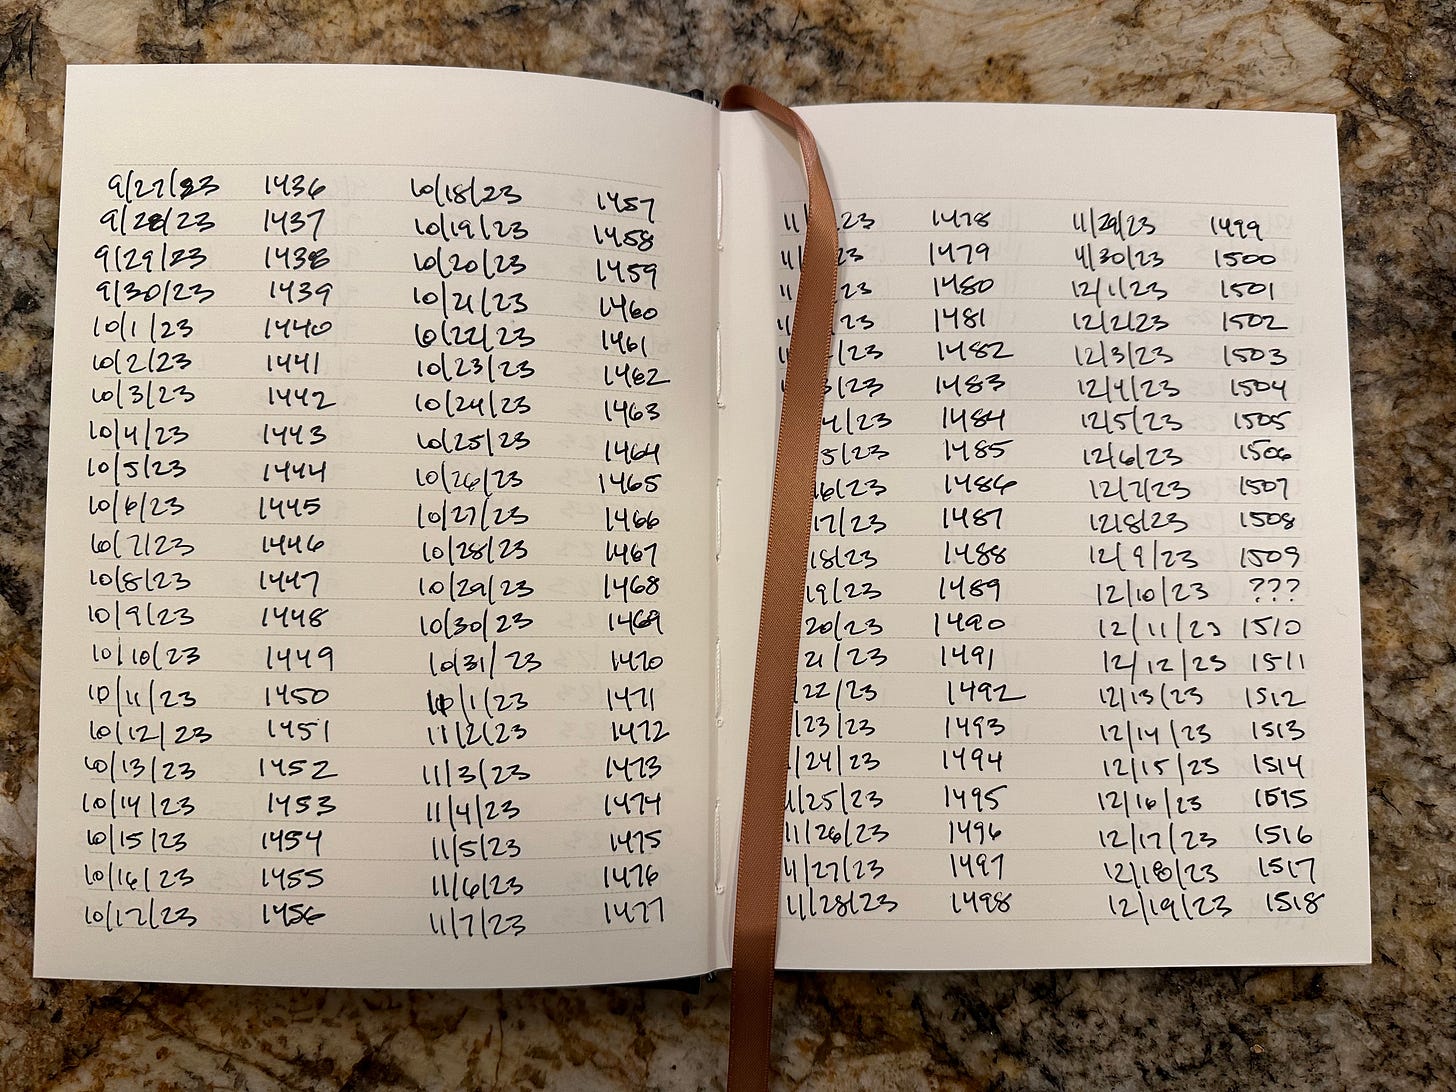 9/27/23 1436
9/28/23 1437
9/29/23 1438
9/30/23 1439
10/1/23 1440
10/2/23 1441
10/3/23 1442
10/4/23 1443
10/5/23 1444
10/6/23 1445
10/7/23 1446
10/8/23 1447
10/9/23 1448
10/10/23 1449
10/11/23 1450
10/12/23 1451
10/13/23 1452
10/14/23 1453
10/15/23 1454
10/16/23 1455
10/17/23 1456
10/18/23 1457
10/19/23 1458
10/20/23 1459
10/21/23 1460
10/22/23 1461
10/23/23 1462
10/24/23 1463
10/25/23 1464
10/26/23 1465
10/27/23 1466
10/28/23 1467
10/29/23 1468
10/30/23 1469
10/31/23 1470
11/1/23 1471
11/2/23 1472
11/3/23 1473
11/4/23 1474
11/5/23 1475
11/6/23 1476
11/7/23 1477
11/ 23 1478
11/ 23 1479
11/ 23 1480
11/ /23 1481
/23 1482
3/23 1483
4/23 1484
5/23 1485
16/23 1486
17/23 1487
18/23 1488
19/23 1489
20/23 1490
21/23 1491
/22/23 1492
/23/23 1493
/24/23 1494
11/25/23 1495
11/26/23 1496
11/27/23 1497
11/28/23 1498
11/29/23 1499
11/30/23 1500
12/1/23 1501
12/2/23 1502
12/3/23 1503
12/4/23 1504
12/5/23 1505
12/6/23 1506
12/7/23 1507
12/8/23 1508
12/9/23 1509
12/10/23 ???
12/11/23 1510
12/12/23 1511
12/13/23 1512
12/14/23 1513
12/15/23 1514
12/16/23 1515
12/17/23 1516
12/18/23 1517
12/19/23 1518